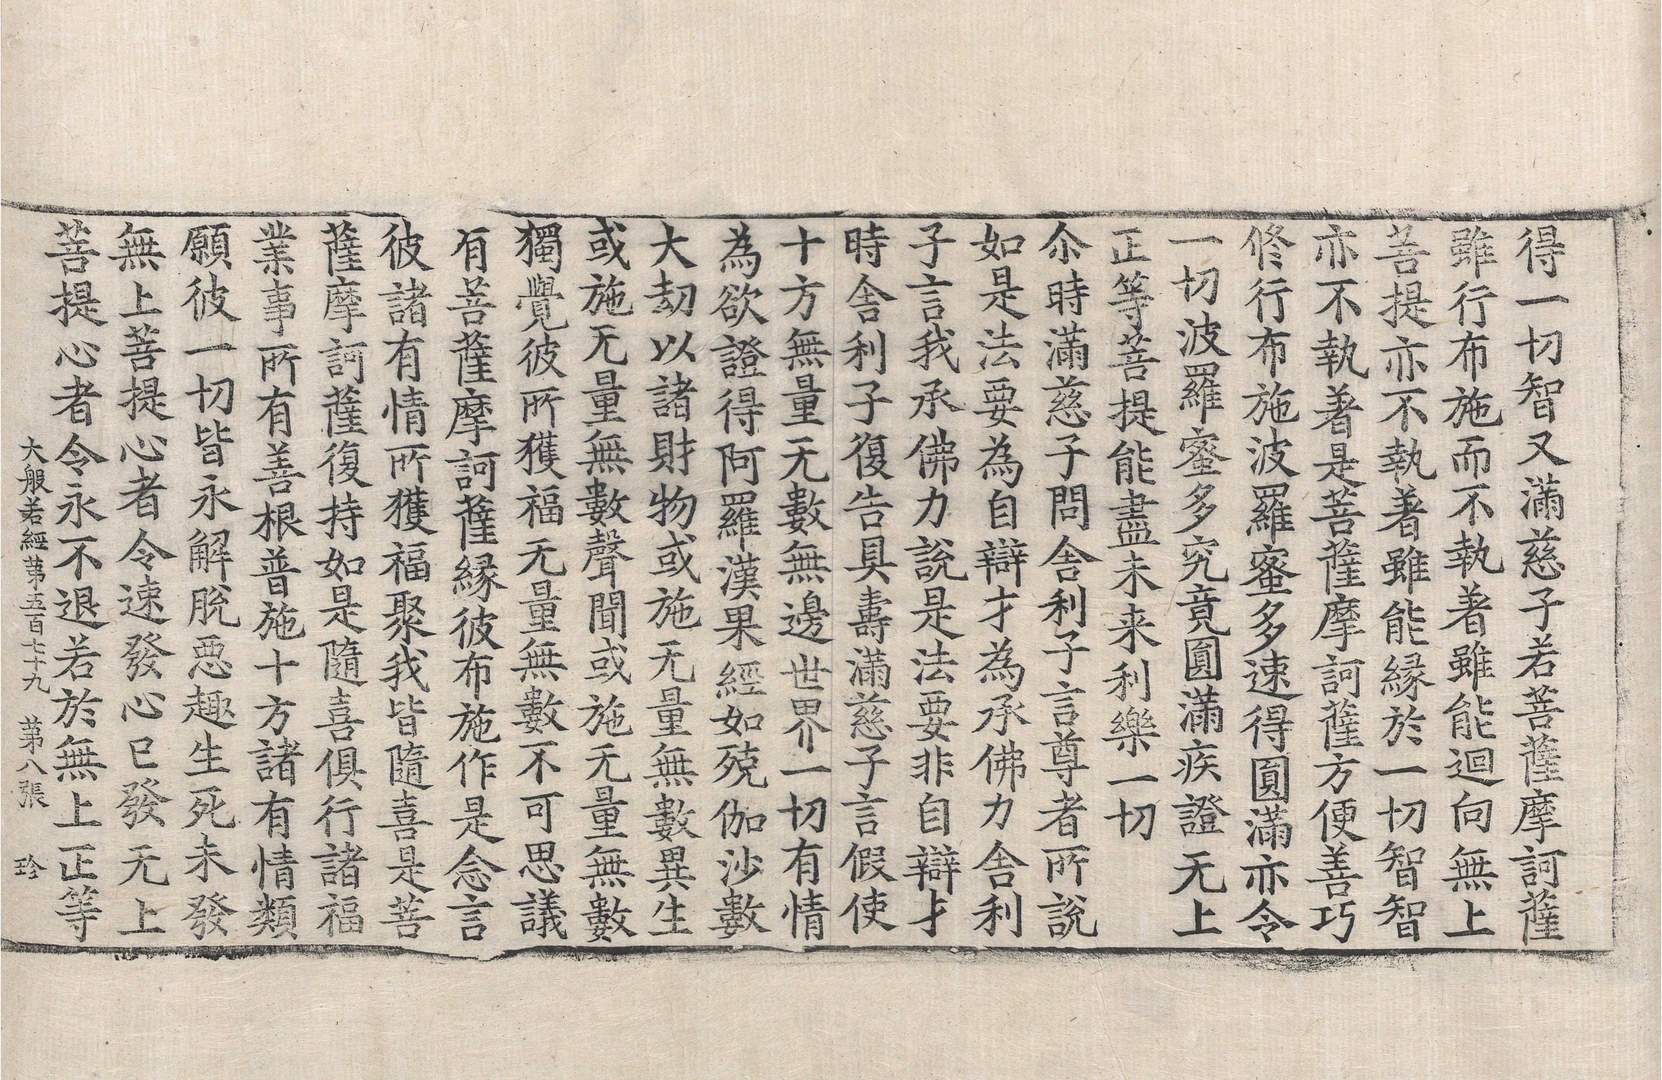 得一切智又滿慈子若菩薩摩訶薩
雖行布施而不執著雖能迴向無上
菩提亦不執著雖能緣於一切智智
亦不執著是菩薩摩訶薩方便善巧
修行布施波羅蜜多速得圓滿亦令
一切波羅蜜多究竟圓滿疾證无上
正等菩提能盡未来利樂一切
尒時滿慈子問舍利子言尊者所說
如是法要為自辯才為承佛力舍利
子言我承佛力說是法要非自辯才
時舍利子復告具壽滿慈子言假使
十方無量无數無邊世界一切有情
為欲證得阿羅漢果經如殑伽沙數
大劫以諸財物或施无量無數異生
或施无量無數聲聞或施无量無數
獨覺彼所獲福无量無數不可思議
有菩薩摩訶薩緣彼布施作是念言
彼諸有情所獲福聚我皆隨喜是菩
薩摩訶薩復持如是隨喜俱行諸福
業事所有善根普施十方諸有情類
願彼一切皆永解脫惡趣生死未發
無上菩提心者令速發心已發无上
菩提心者令永不退若於無上正等
大般若經苐五百七十九　苐八張　珍